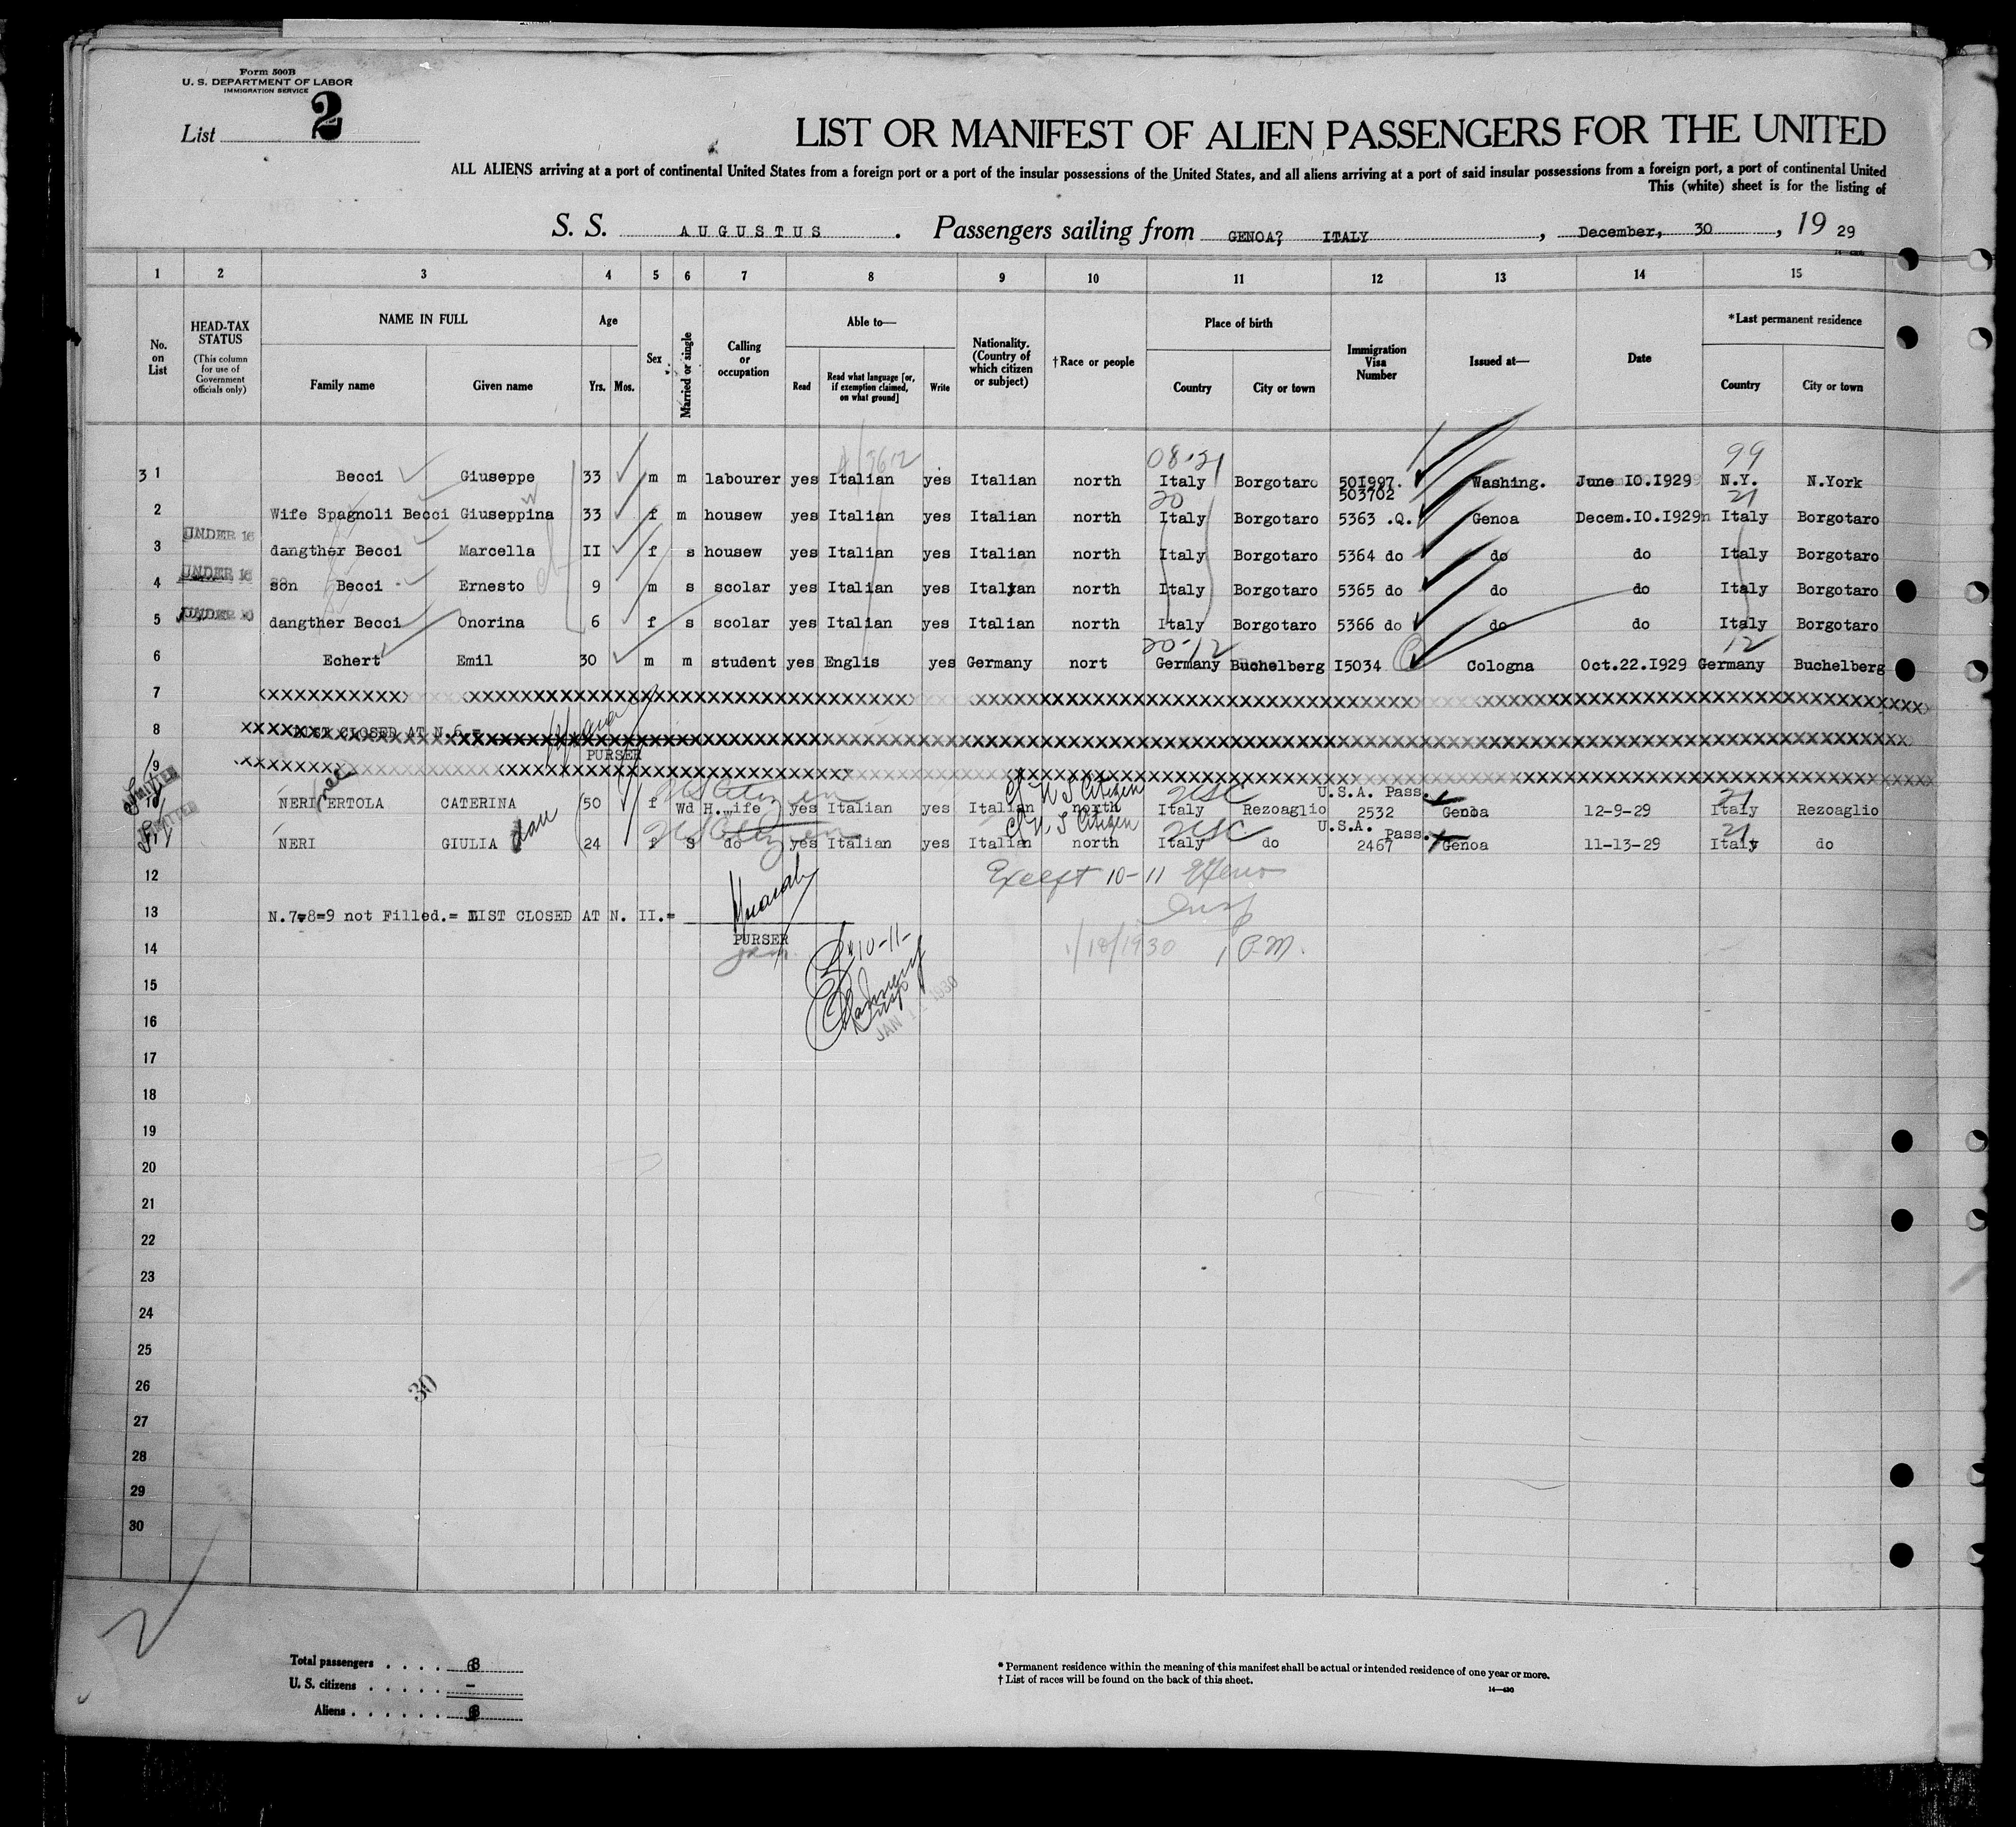 Form 500B
U. S. DEPARTMENT OF LABOR
IMMIGRATION SERVICE
List 2
LIST OR MANIFEST OF ALIEN PASSENGERS FOR THE UNITED
ALL ALIENS arriving at a port of continental United States from a foreign port or a port of the insular possessions of the United States, and all aliens arriving at a port of said insular possessions from a foreign port, a port of continental United
This (white) sheet is for the listing of
S. S. AUGUSTUS . Passengers sailing from GENOA? ITALY , December, 30 , 19 29
14—430
1 2 3 4 5 6 7 8 9 10 11 12 13 14 15
No. on List
HEAD-TAX STATUS (This column for use of Government officials only)
NAME IN FULL
Family name
Given name
Age
Yrs. Mos.
Sex
Married or single
Calling or occupation
Able to—
Read
Read what language [or, if exemption claimed, on what ground]
Write
Nationality. (Country of which citizen or subject)
†Race or people
Place of birth
Country
City or town
Immigration Visa Number
Issued at—
Date
*Last permanent residence
Country
City or town
08-21 99
3 1 Becci Giuseppe 33 m m labourer yes Italian yes Italian north Italy Borgotaro 501997. Washing. June IO.I929 N.Y. N.York
503702
20 21
2 Wife Spagnoli Becci Giuseppina 33 f m housew yes Italian yes Italian north Italy Borgotaro 5363 .Q. Genoa Decem.IO.I929 Italy Borgotaro
UNDER 16
3 dangther Becci Marcella II f s housew yes Italian yes Italian north Italy Borgotaro 5364 do do do Italy Borgotaro
UNDER 16
4 son Becci Ernesto 9 m s scolar yes Italian yes Italyan north Italy Borgotaro 5365 do do do Italy Borgotaro
UNDER 16
5 dangther Becci Onorina 6 f s scolar yes Italian yes Italian north Italy Borgotaro 5366 do do do Italy Borgotaro
20-12 12
6 Echert Emil 30 m m student yes Englis yes Germany nort Germany Buchelberg I5034 Cologna Oct.22.I929 Germany Buchelberg
7
8 LIST CLOSED AT N.6.=
PURSER
9
nee US Citizen U S Citizen USC U.S.A. Pass. 21
10 NERI ERTOLA CATERINA 50 f Wd H.wife yes Italian yes Italian north Italy Rezoaglio 2532 Genoa 12-9-29 Italy Rezoaglio
ADMITTED
US Citizen U. S Citizen USC U.S.A. Pass. 21
NERI GIULIA dau 24 f S do yes Italian yes Italian north Italy do 2467 Genoa 11-13-29 Italy do
12 Except 10-11
Insp
13 N.7=8=9 not Filled.= LIST CLOSED AT N. II.=
PURSER
14 10-11- 1/18/1930 1 P.M.
15
Insp
16 JAN 1930
17
18
19
20
21
22
23
24
25
26
30
27
28
29
30
2
Total passengers . . . .
U. S. citizens . . . . . -
Aliens . . . . . .
* Permanent residence within the meaning of this manifest shall be actual or intended residence of one year or more.
† List of races will be found on the back of this sheet.
14—430